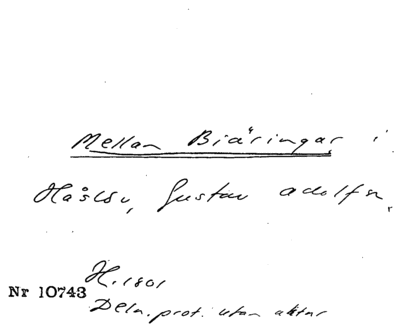 Mellan Biäringar i
Håslöv, Gustav Adolfsn.
H. 1801
Nr 10743
Deln. prot. utan aktnr